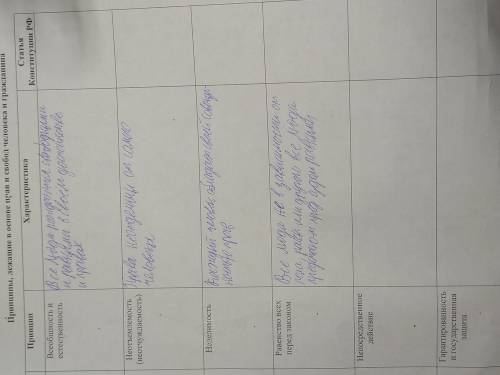 Принципы, лежащие в основе прав и свобод человека и гражданина
Принцип
Характеристика
Статья
Конституции РФ
Всеобщность и
естественность
Все люди рождаются свободными
и равными в своем достоинстве
и правах
Неотъемлемость
(неотчуждаемость)
Права неотделимы от самого
человека
Неделимость
Каждый человек обладает всей
прав
Равенство всех
перед законом
Все люди не в зависимости от
все люди
перед
Непосредственное
действие
Гарантированность
и государственная
защита